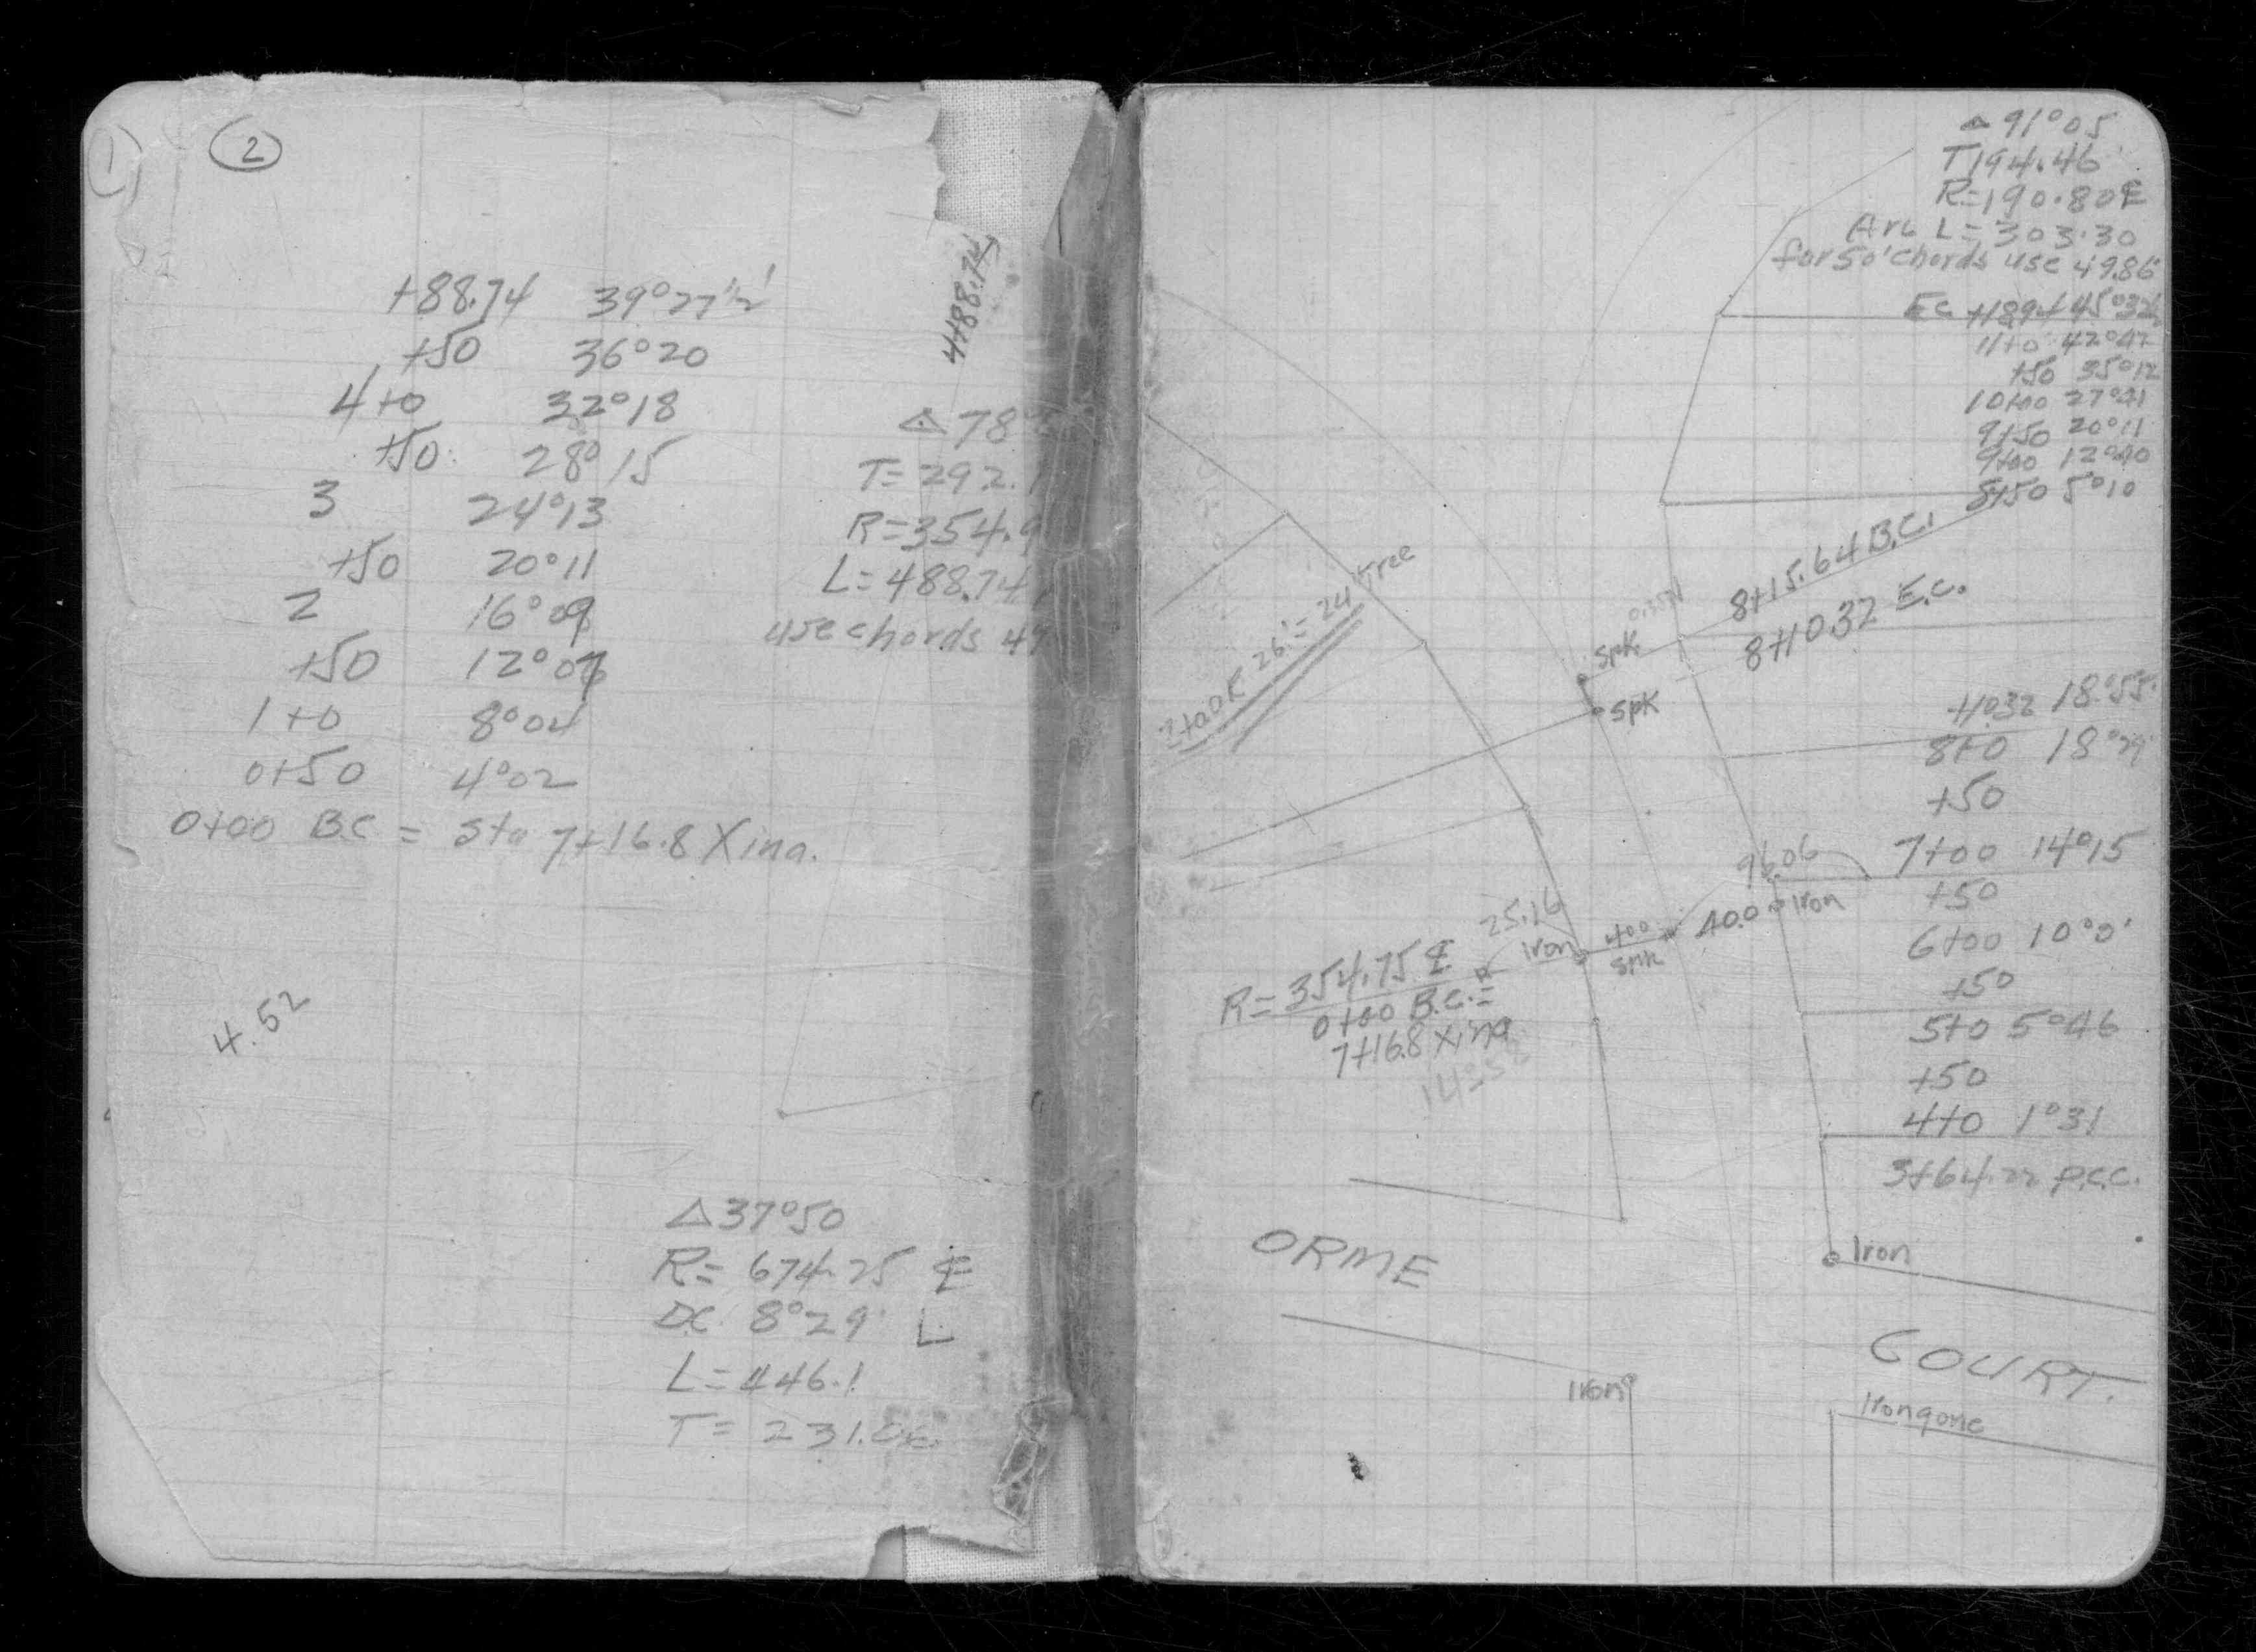 1
2
+88.74 39°27½'
+50 36°20
4+0 32°18
+50 28°15
3 24°13
+50 20°11
2 16°09
+50 12°07
1+0 8°04
0+50 4°02
0+00 B.C = Sta 7+16.8 Xina.
4+88.74
△ 78°
T= 292.1
R=354.9
L=488.74
use chords 49
4.52
△37°50
R= 674.25 ℄
DC 8°29' L
L=446.1
T= 231.06
△ 91°05
T194.46
R=190.80℄
Arc L= 303.30
for 50' chords use 49.86'
EC +18.94 45°32½
11+0 42°42
+50 35°12
10+00 27°41
9+50 20°11
9+00 12°40
8+50 5°10
8+15.64 B.C.
8+10.32 E.C.
Spk
Spk
2+00 K 26.'= 24" Tree
+10.32 18°55'
8+0 18°29'
+50
7+00 14°15
+50
6+00 10°0'
+50
5+0 5°46
+50
4+0 1°31
3+64.22 P.C.C.
96.06
40.0
Iron
25.16
Iron
400
Spk
R=354.75 ℄
0+00 B.C.=
7+16.8 Xina
ORME
Iron
COURT.
Iron
Iron gone